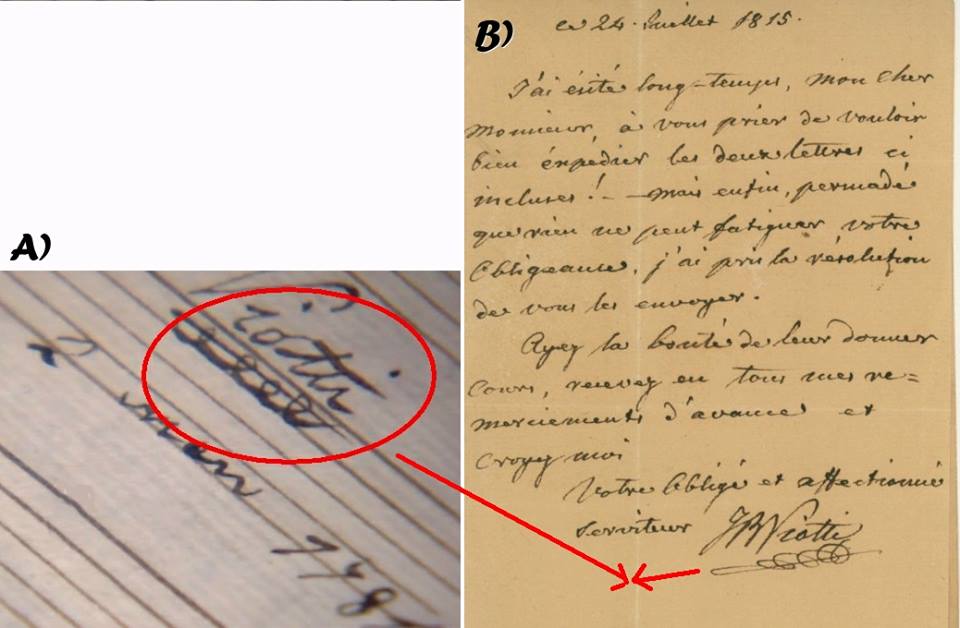 A)
Viotti
2
B)
ce 24. Juillet 1815.
J'ai ésité long-temps, mon cher
Monsieur, à vous prier de vouloir
bien éxpédier les deux lettres ci
incluses! - mais enfin, persuadé
que rien ne peut fatiguer votre
Obligeance, j'ai pris la résolution
de vous les envoyer.
Ayez la bonté de leur donner
Cours, recevez en tous mes re=
merciements d'avance et
Croyez moi
Votre Obligé et affectionné
Serviteur JBViotti